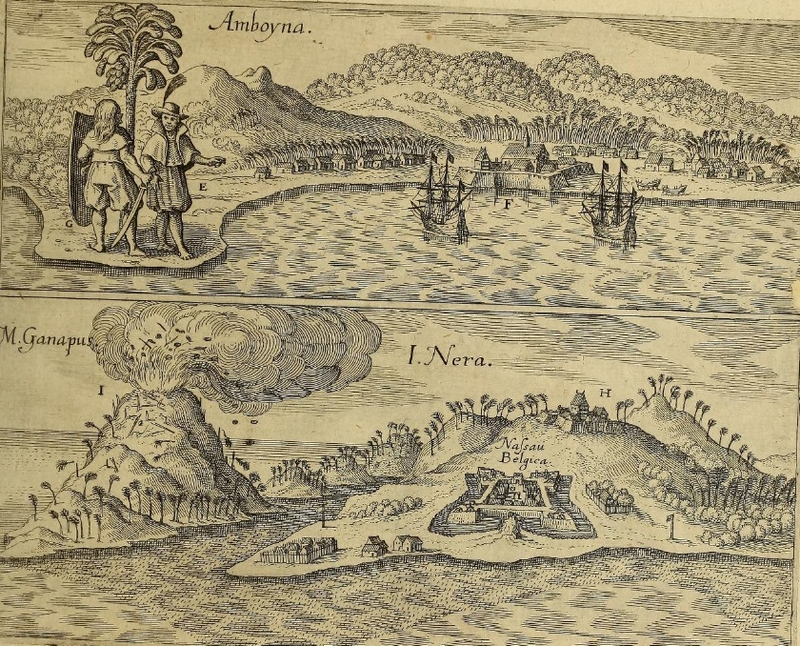 Amboyna.
E
G
F
M. Ganapus
I. Nera.
I
H
Nassau
Bélgica.